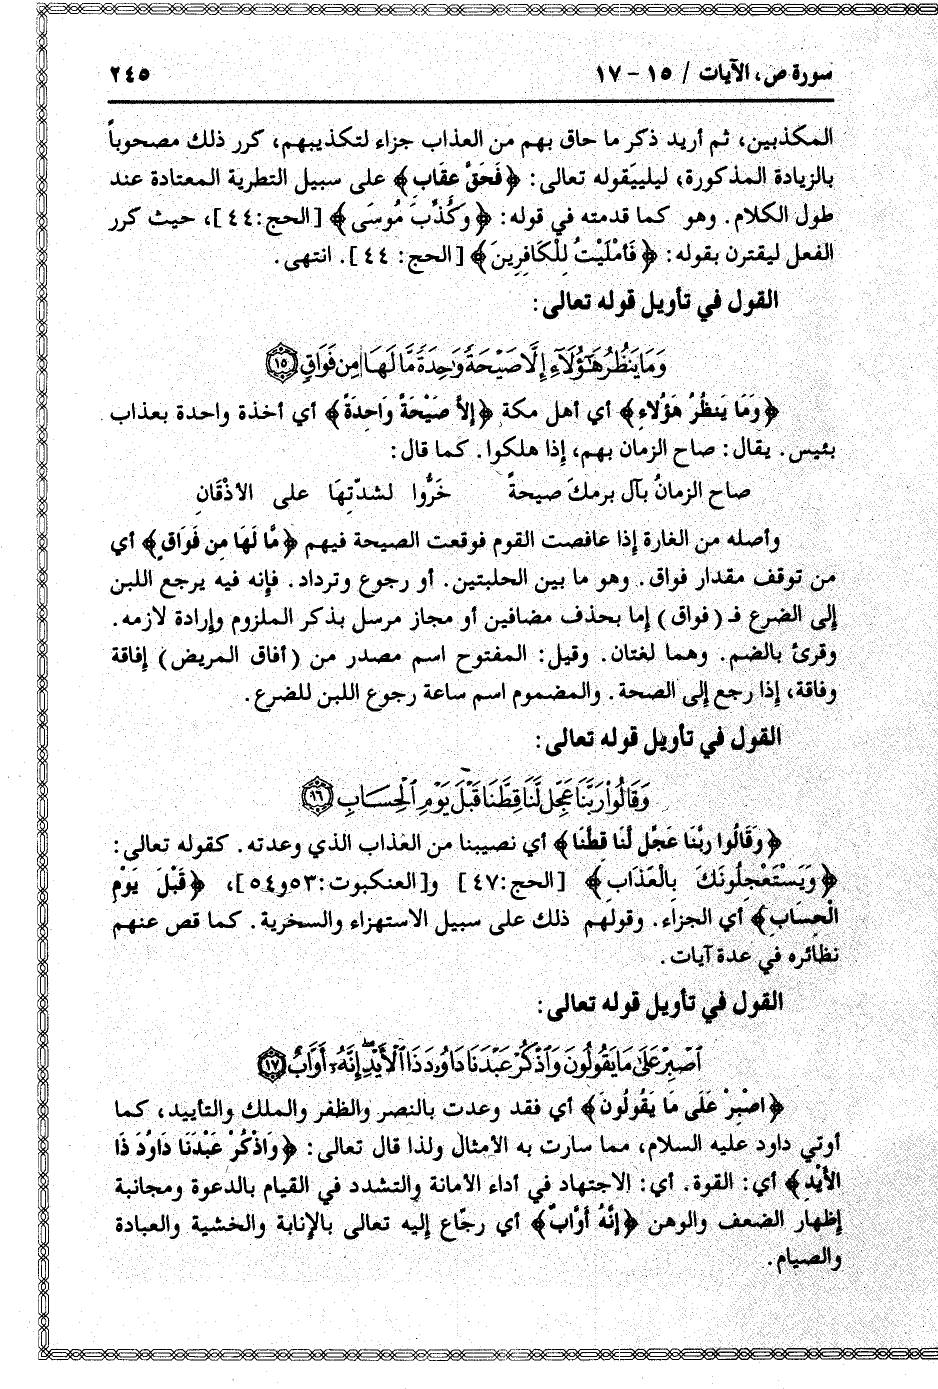 سورة ص، الآيات / ١٥ - ١٧
٢٤٥
المكذبين، ثم أريد ذكر ما حاق بهم من العذاب جزاء لتكذيبهم، كرر ذلك مصحوباً
بالزيادة المذكورة، ليليَقوله تعالى: ﴿فَحَقَّ عِقَاب﴾ على سبيل التطرية المعتادة عند
طول الكلام. وهو كما قدمته في قوله: ﴿وَكُذِّبَ مُوسَى﴾ [الحج:٤٤]، حيث كرر
الفعل ليقترن بقوله: ﴿فَأَمْلَيْتُ لِلْكَافِرِينَ﴾ [الحج: ٤٤]. انتهى.
القول في تأويل قوله تعالى:
وَمَا يَنظُرُ هَٰٓؤُلَآءِ إِلَّا صَيْحَةً وَٰحِدَةً مَّا لَهَا مِن فَوَاقٍ ١٥
﴿وَمَا يَنظُرُ هَؤُلاءِ﴾ أي أهل مكة ﴿إِلاَّ صَيْحَةً وَاحِدَةً﴾ أي أخذة واحدة بعذاب
بئيس. يقال: صاح الزمان بهم، إذا هلكوا. كما قال:
صاح الزمانُ بآل برمكَ صيحةً خَرُّوا لشدّتِهَا على الأذْقَانِ
وأصله من الغارة إذا عافصت القوم فوقعت الصيحة فيهم ﴿مَّا لَهَا مِن فَوَاقٍ﴾ أي
من توقف مقدار فواق. وهو ما بين الحلبتين. أو رجوع وترداد. فإنه فيه يرجع اللبن
إلى الضرع فـ(فواق) إما بحذف مضافين أو مجاز مرسل بذكر الملزوم وإرادة لازمه.
وقرئ بالضم. وهما لغتان. وقيل: المفتوح اسم مصدر من (أفاق المريض) إفاقة
وفاقة، إذا رجع إلى الصحة. والمضموم اسم ساعة رجوع اللبن للضرع.
القول في تأويل قوله تعالى:
وَقَالُوا۟ رَبَّنَا عَجِّل لَّنَا قِطَّنَا قَبْلَ يَوْمِ ٱلْحِسَابِ ٩٦
﴿وَقَالُوا رَبَّنَا عَجِّلْ لَنَا قِطَّنَا﴾ أي نصيبنا من العذاب الذي وعدته. كقوله تعالى:
﴿وَيَسْتَعْجِلُونَكَ بِالْعَذَابِ﴾ [الحج:٤٧] و[العنكبوت:٥٣و٥٤]، ﴿قَبْلَ يَوْمِ
الْحِسَابِ﴾ أي الجزاء. وقولهم ذلك على سبيل الاستهزاء والسخرية. كما قص عنهم
نظائره في عدة آيات.
القول في تأويل قوله تعالى:
ٱصْبِرْ عَلَىٰ مَا يَقُولُونَ وَٱذْكُرْ عَبْدَنَا دَاوُۥدَ ذَا ٱلْأَيْدِ ۖ إِنَّهُۥٓ أَوَّابٌ ١٧
﴿اصْبِرْ عَلَى مَا يَقُولُونَ﴾ أي فقد وعدت بالنصر والظفر والملك والتأييد، كما
أوتي داود عليه السلام، مما سارت به الأمثال ولذا قال تعالى: ﴿وَاذْكُرْ عَبْدَنَا دَاوُدَ ذَا
الأَيْدِ﴾ أي: القوة. أي: الاجتهاد في أداء الأمانة والتشدد في القيام بالدعوة ومجانبة
إظهار الضعف والوهن ﴿إِنَّهُ أَوَّابٌ﴾ أي رجّاع إليه تعالى بالإنابة والخشية والعبادة
والصيام.